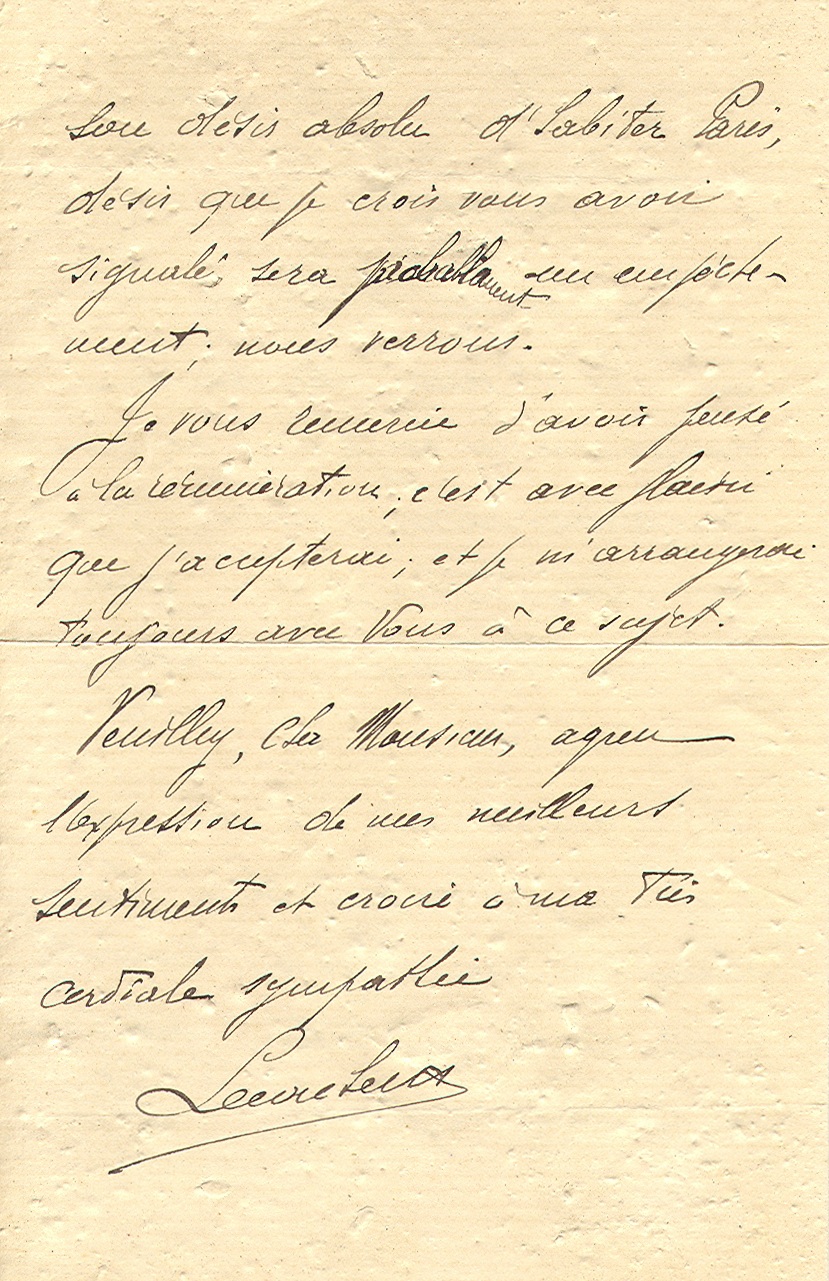 son désir absolu d'habiter Paris,
désir que je crois vous avoir
signalé, sera probablement un empéche-
ment; nous verrons.
Je vous remercie d'avoir pensé
à la rémunération; c'est avec plaisir
que j'accepterai; et je m'arrangerai
toujours avec Vous à ce sujet.
Veuillez, cher Monsieur, agréer
l'expression de mes meilleurs
sentiments et croire à ma très
cordiale sympathie